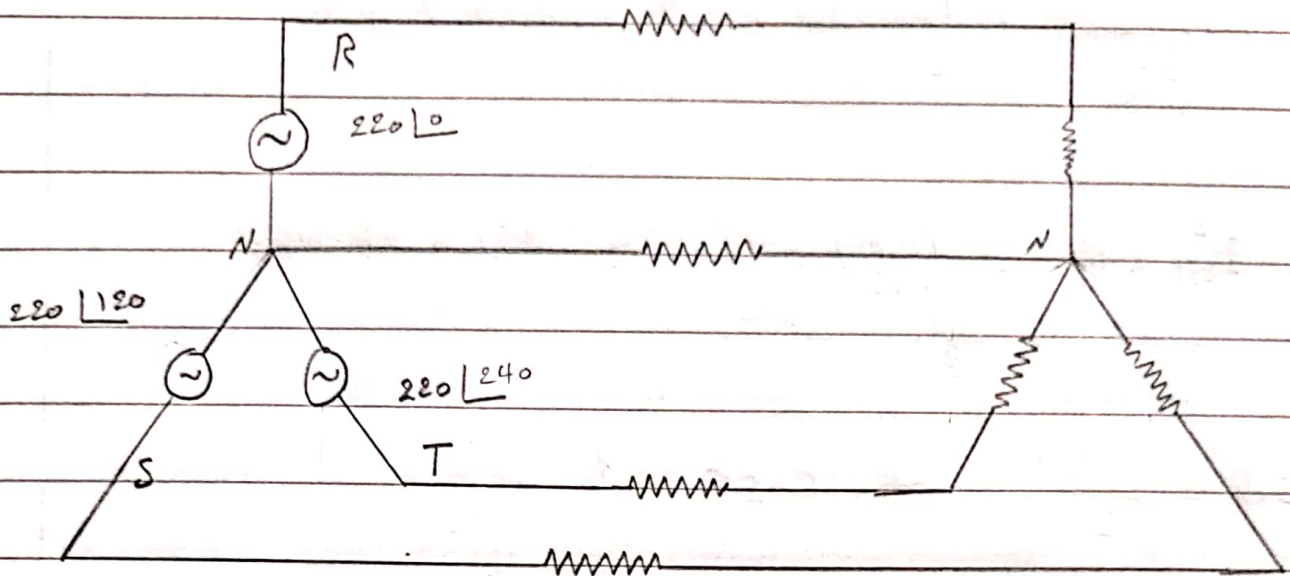 R
220∠0
N
N
220∠120
220∠240
S
T